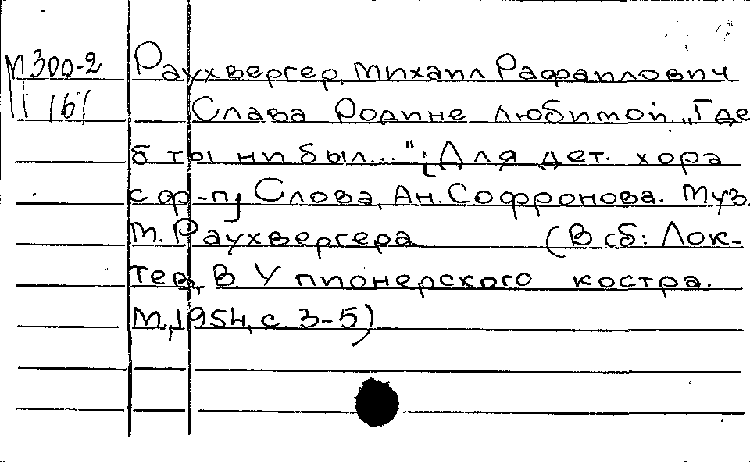 М300-2 Раухвергер, Михаил Рафаилович
161 Слава Родине любимой „Где
б ты ни был..." [Для дет. хора
с ф-п] Слова, Ан. Софронова. Муз.
М. Раухвергера (В сб: Лок-
тев, В У пионерского костра.
М, 1954, с 3-5)